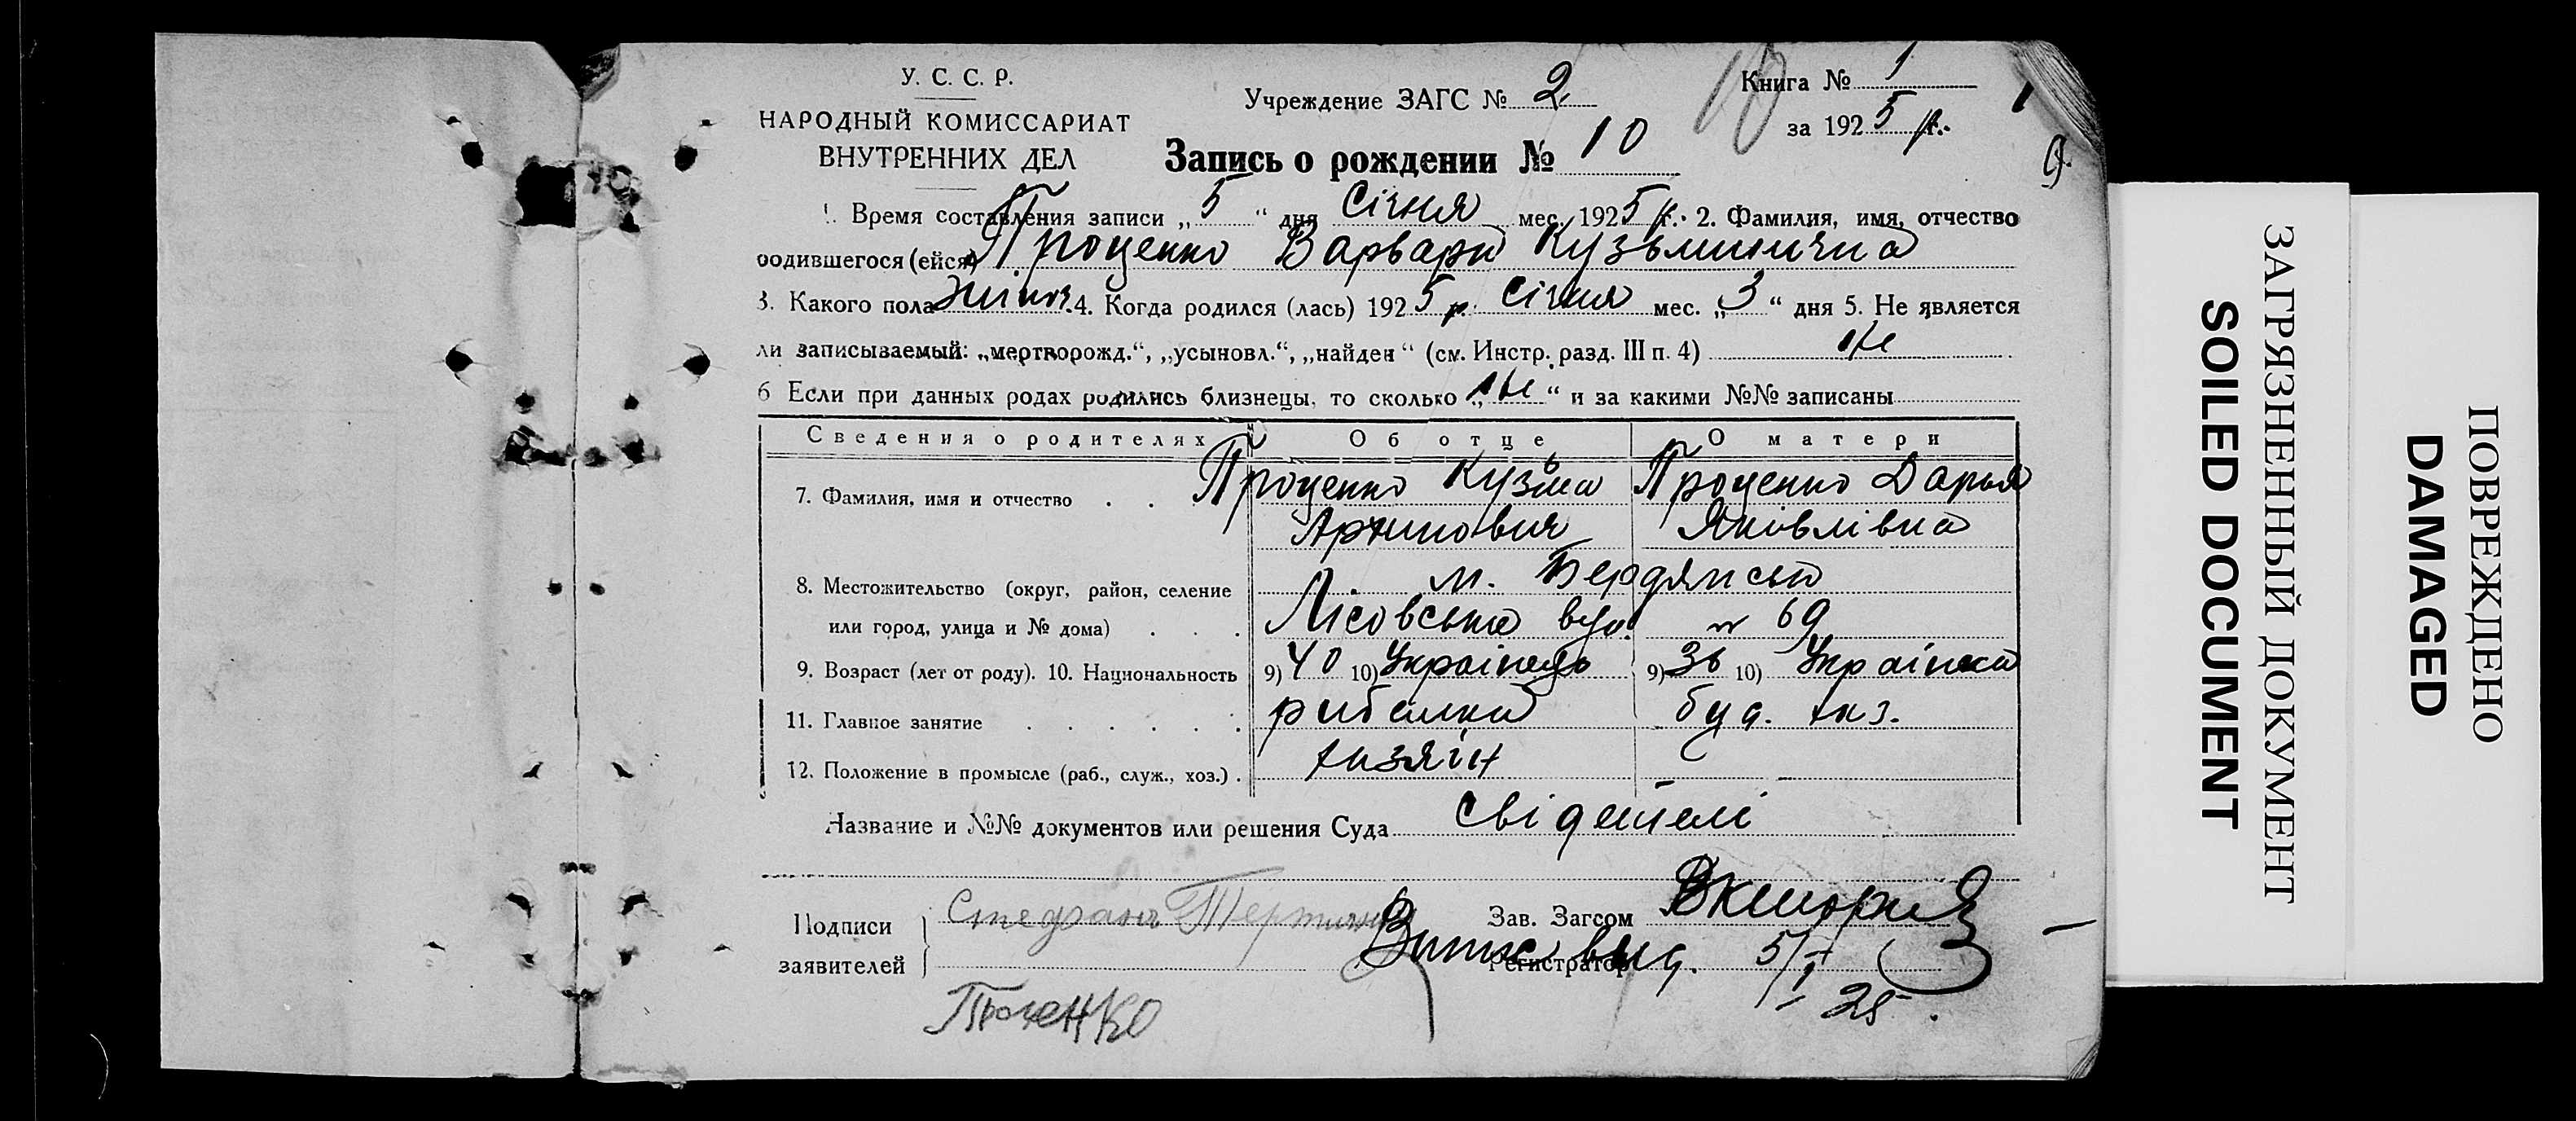 У. С. С. Р.
НАРОДНЫЙ КОМИССАРИАТ
ВНУТРЕННИХ ДЕЛ
Учреждение ЗАГС № 2
Книга № 1
за 1925 р.
10
Запись о рождении № 10
1. Время составления записи „5“ дня Січня мес. 1925 р. 2. Фамилия, имя, отчество
родившегося (ейся) Проценко Варвара Кузьминична
3. Какого пола жіноч. 4. Когда родился (лась) 1925 р. Січня мес. „3“ дня 5. Не является
ли записываемый: „мертворожд.“, „усыновл.“, „найден“ (см. Инстр. разд. III п. 4) Не
6 Если при данных родах родились близнецы, то сколько „Не“ и за какими №№ записаны
Сведения о родителях Об отце О матери
7. Фамилия, имя и отчество . . Проценко Кузьма Проценко Дарья
Яковлівна
8. Местожительство (округ, район, селение м. Бердянськ
или город, улица и № дома) . . . Лісовська вул. № 69
9. Возраст (лет от роду). 10. Национальность 9) 40 10) Українець 9) 36 10) Українка
11. Главное занятие . . . . . . рибалка
12. Положение в промысле (раб., служ., хоз.) . хазяїн
Название и №№ документов или решения Суда свідетелі
Подписи
заявителей
Проценко
Зав. Загсом
Регистратор
5/I
25
ЗАГРЯЗНЕННЫЙ ДОКУМЕНТ
SOILED DOCUMENT
ПОВРЕЖДЕНО
DAMAGED